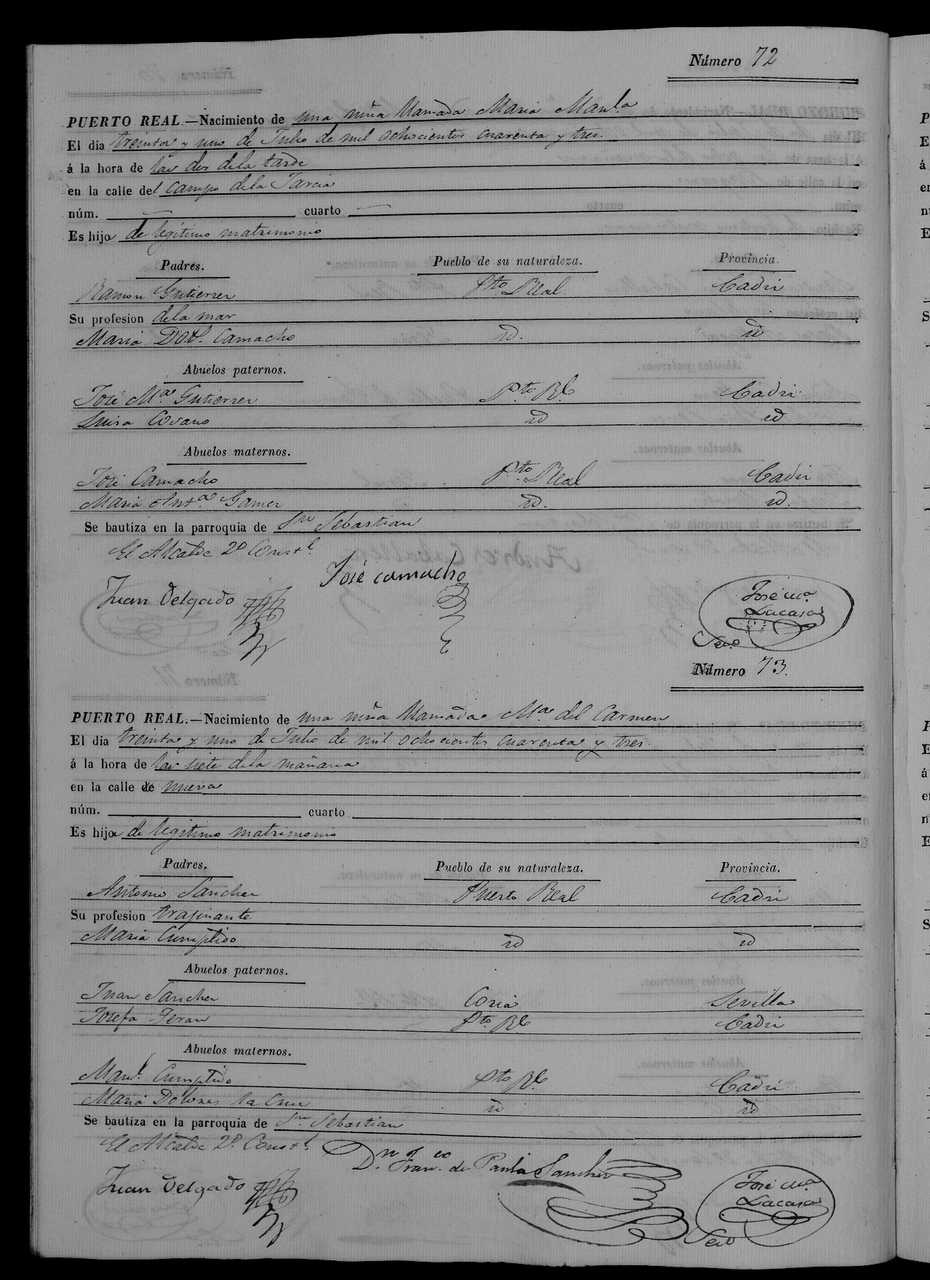 Número 72
PUERTO REAL.—Nacimiento de una niña llamada Maria Manla
El dia treinta y uno de Julio de mil ochocientos cuarenta y tres
á la hora de las dos de la tarde
en la calle del Campo de la Jarcia
núm. cuarto
Es hija de legitimo matrimonio
Padres. Pueblo de su naturaleza. Provincia.
Ramon Gutierrez Pto Real Cadiz
Su profesion de la mar
Maria Dol.s Camacho id. id
Abuelos paternos.
José Ma Gutierrez Pto Rl Cadiz
Luisa id id
Abuelos maternos.
José Camacho Pto Real Cadiz
Maria Anta Gomez id. id.
Se bautiza en la parroquia de Sn Sebastian
El Alcalde 2º Const.l
José camacho
Juan Delgado
José Ma
Lacasa
Seco
Número 73.
PUERTO REAL.—Nacimiento de una niña llamada Ma del Carmen
El dia treinta y uno de Julio de mil ochocientos cuarenta y tres
á la hora de las siete de la mañana
en la calle de nueva
núm. cuarto
Es hija de legitimo matrimonio
Padres. Pueblo de su naturaleza. Provincia.
Antonio Sanchez Puerto Real Cadiz
Su profesion traginante
Maria Cumplido id id
Abuelos paternos.
Juan Sanchez Coria Sevilla
Josefa Teran Pto Rl Cadiz
Abuelos maternos.
Manl. Cumplido Pto Rl Cadiz
Maria Dolores la Cruz id id
Se bautiza en la parroquia de Sn Sebastian
El Alcalde 2º Const.l
Dn Franco de Paula Sanchez
Juan Delgado
José Ma
Lacasa
Seco